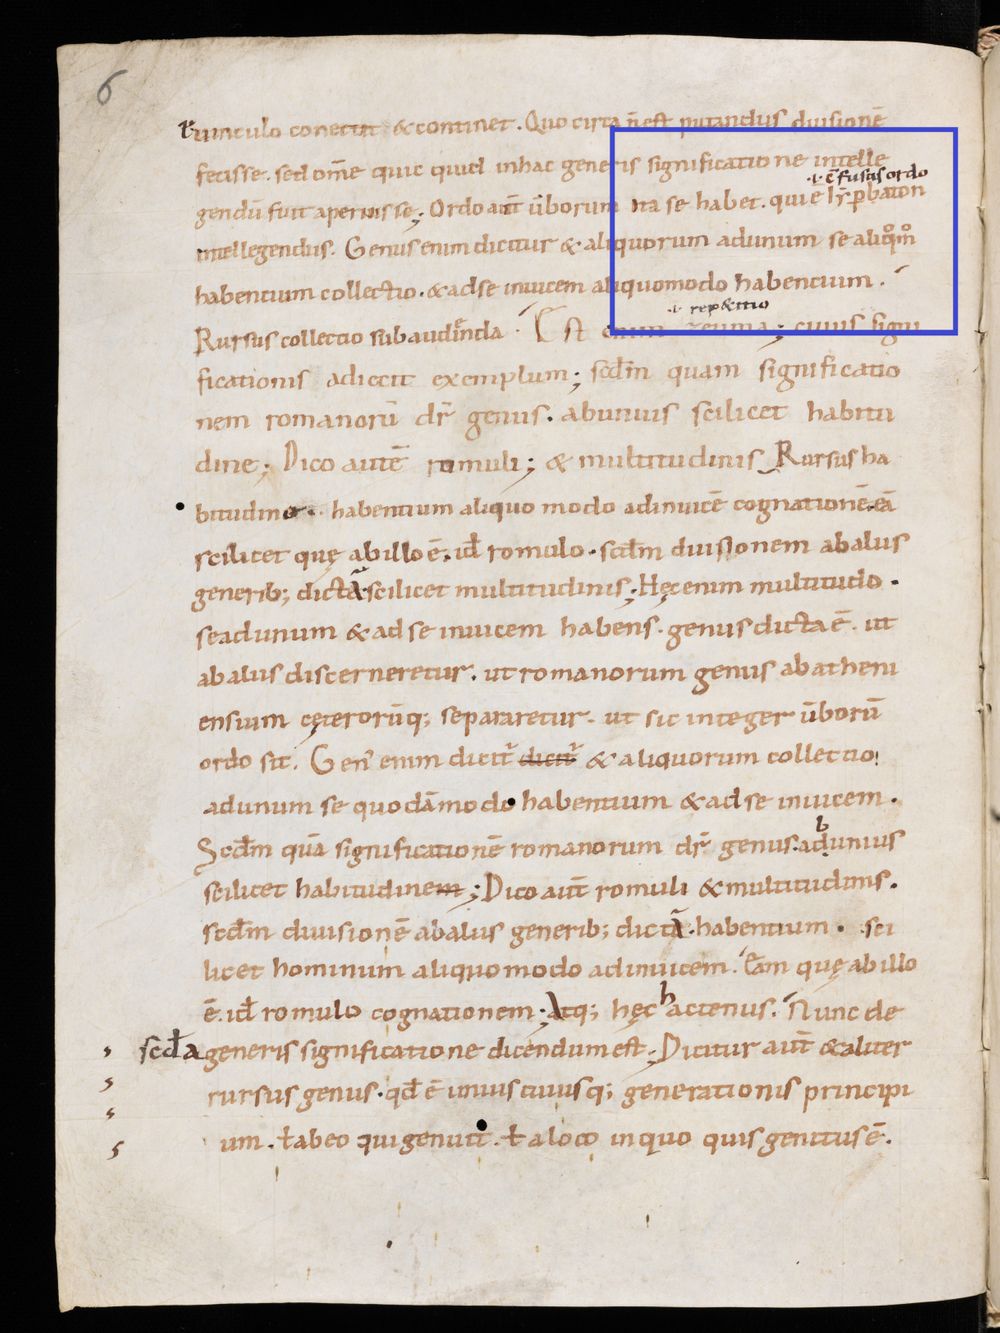 6
tiunculo conectit & continet. Quo circa n̄ est putandus diuisionē
fecisse. sed om̄e quic quid inhac generis significatione intelle
.i. c̄fusus ordo
gendū fuit aperuisse; Ordo aut̄ ūborum ita se habet. qui ē hẏꝑbaton
intellegendus. Genus enim dicitur & aliquorum adunum se aliqͦmͦ
habentium collectio. & adse inuicem aliquomodo habentium.
.i. rep&itio
Rursus collectio subaudienda. Est enim zeuma; cuius signi
ficationis adiecit exemplum; scd̄m quam significatio
nem romanorū dr̄ genus. abunius scilicet habitu
dine; Dico autē romuli; & multitudinis Rursus ha
bitudine. habentium aliquo modo adinuicē cognationē. eā
scilicet quę abillo ē, id̄ romulo. scd̄m diuisionem abalus
generib; dictā scilicet multitudinis; Hęc enim multitudo.
seadunum & adse inuicem habens. genus dicta ē. ut
abalus discerneretur. ut romanorum genus abatheni
ensium cęterorūq; separaretur. ut sic integer ūborū
ordo sit. Gen᾽ enim dicit᾽ dicit᾽ & aliquorum collectio
adunum se quodāmodo habentium & adse inuicem.
Scd̄m quā significationē romanorum dr̄ genus. adunius
b
scilicet habitudinem; Dico aut̄ romuli & multitudinis.
scd̄m diuisionē abalus generib; dictā. habentium. sci
licet hominum aliquomodo adinuicem. Eam quę abillo
ē. id̄ romulo cognationem; Atq; hęc hactenus. Nunc de
scd̄a generis significatione dicendum est; Dicitur aut̄ & aliter
rursus genus. qd̄ ē unius cuiusq; generationis principi
um. ł abeo qui genuit. ł aloco inquo quis genitus ē.